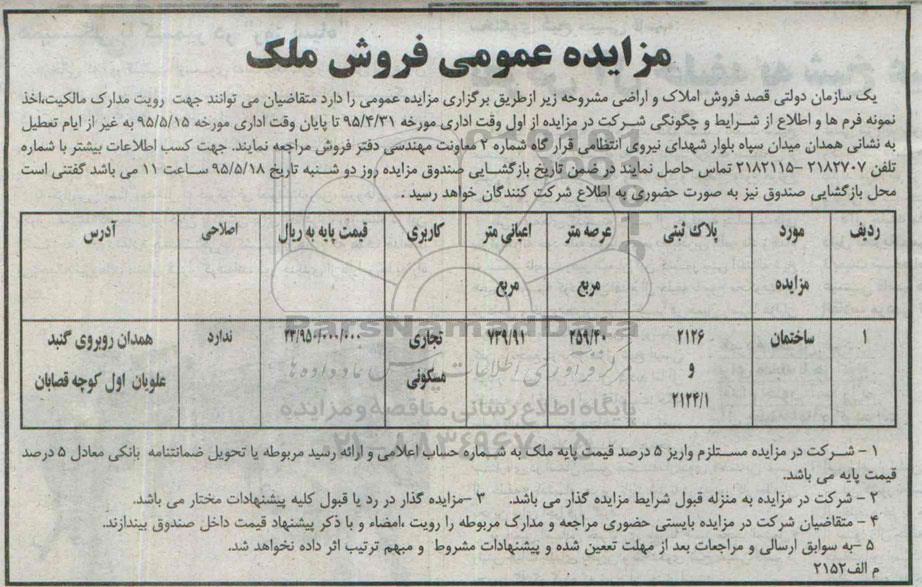 مزایده عمومی فروش ملک
یک سازمان دولتی قصد فروش املاک و اراضی مشروحه زیر ازطریق برگزاری مزایده عمومی را دارد متقاضیان می توانند جهت رویت مدارک مالکیت،اخذ
نمونه فرم ها و اطلاع از شرایط و چگونگی شرکت در مزایده از اول وقت اداری مورخه ۹۵/۴/۳۱ تا پایان وقت اداری مورخه ۹۵/۵/۱۵ به غیر از ایام تعطیل
به نشانی همدان میدان سپاه بلوار شهدای نیروی انتظامی قرار گاه شماره ۲ معاونت مهندسی دفتر فروش مراجعه نمایند. جهت کسب اطلاعات بیشتر با شماره
تلفن ۲۱۸۲۷۰۷ –۲۱۸۲۱۱۵ تماس حاصل نمایند در ضمن تاریخ بازگشایی صندوق مزایده روز دو شنبه تاریخ ۹۵/۵/۱۸ ساعت ۱۱ می باشد گفتنی است
محل بازگشایی صندوق نیز به صورت حضوری به اطلاع شرکت کنندگان خواهد رسید .
ردیف مورد مزایده پلاک ثبتی عرصه متر مربع اعیانی متر مربع کاربری قیمت پایه به ریال اصلاحی آدرس
۱ ساختمان ۲۱۲۶ و ۲۱۲۴/۱ ۲۵۹/۴۰ ۷۳۹/۹۱ تجاری مسکونی ۲۳/۹۵۰/۰۰۰/۰۰۰ ندارد همدان روبروی گنبد علویان اول کوچه قصابان
ParsNamadData
پایگاه اطلاع رسانی مناقصه و مزایده
۱ – شرکت در مزایده مستلزم واریز ۵ درصد قیمت پایه ملک به شماره حساب اعلامی و ارائه رسید مربوطه یا تحویل ضمانتنامه بانکی معادل ۵ درصد
قیمت پایه می باشد.
۲ – شرکت در مزایده به منزله قبول شرایط مزایده گذار می باشد. ۳ –مزایده گذار در رد یا قبول کلیه پیشنهادات مختار می باشد.
۴ – متقاضیان شرکت در مزایده بایستی حضوری مراجعه و مدارک مربوطه را رویت ،امضاء و با ذکر پیشنهاد قیمت داخل صندوق بیندازند.
۵ –به سوابق ارسالی و مراجعات بعد از مهلت تعیین شده و پیشنهادات مشروط و مبهم ترتیب اثر داده نخواهد شد.
م الف۲۱۵۲